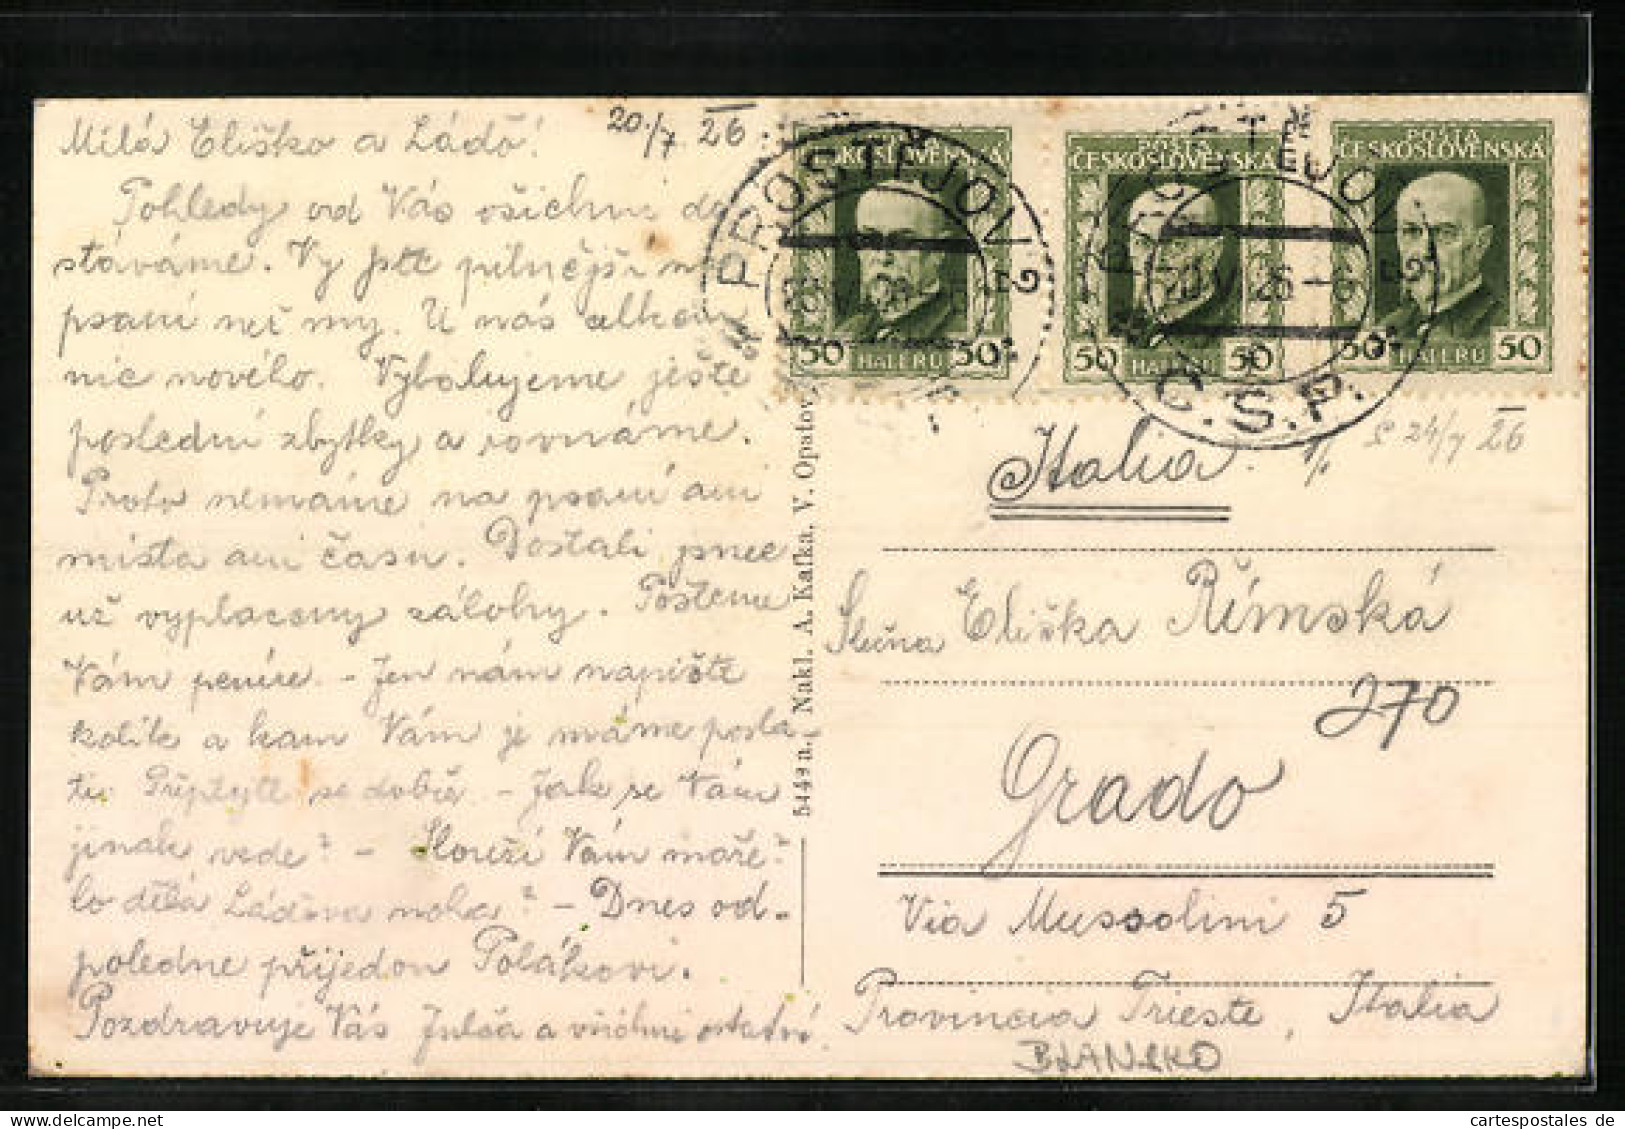 Milá Eliško a Láďo!
20./7 26.
Pohledy od Vás všichni do-
stáváme. Vy jste pilnější na
psaní než my. U nás celkem
nic nového. Vybalujeme ještě
poslední zbytky a rovnáme.
Proto nemáme na psaní ani
místa ani času. Dostali jsme
už vyplaceny zálohy. Pošleme
Vám peníze. - Jen nám napište
kolik a kam Vám je máme posla-
ti. se dobře - Jak se Vám
jinak vede? - Slouží Vám moře?
Co dělá Láďova noha? - Dnes od-
poledne přijedou Polákovi.
Pozdravuje Vás Julča a všichni ostatní.
5449 n., Nakl. A. Kafka, V. Opatov
POŠTA
ČESKOSLOVENSKÁ
50 HALÉŘŮ 50
POŠTA
ČESKOSLOVENSKÁ
50 HALÉŘŮ 50
POŠTA
ČESKOSLOVENSKÁ
50 HALÉŘŮ 50
PROSTĚJOV 2
PROSTĚJOV 2
Č.S.P.
Italia.
24/7 26
Slečna Eliška Římská
270
Grado
Via Mussolini 5
Provincia Trieste, Italia
BLANSKO
cartespostales de